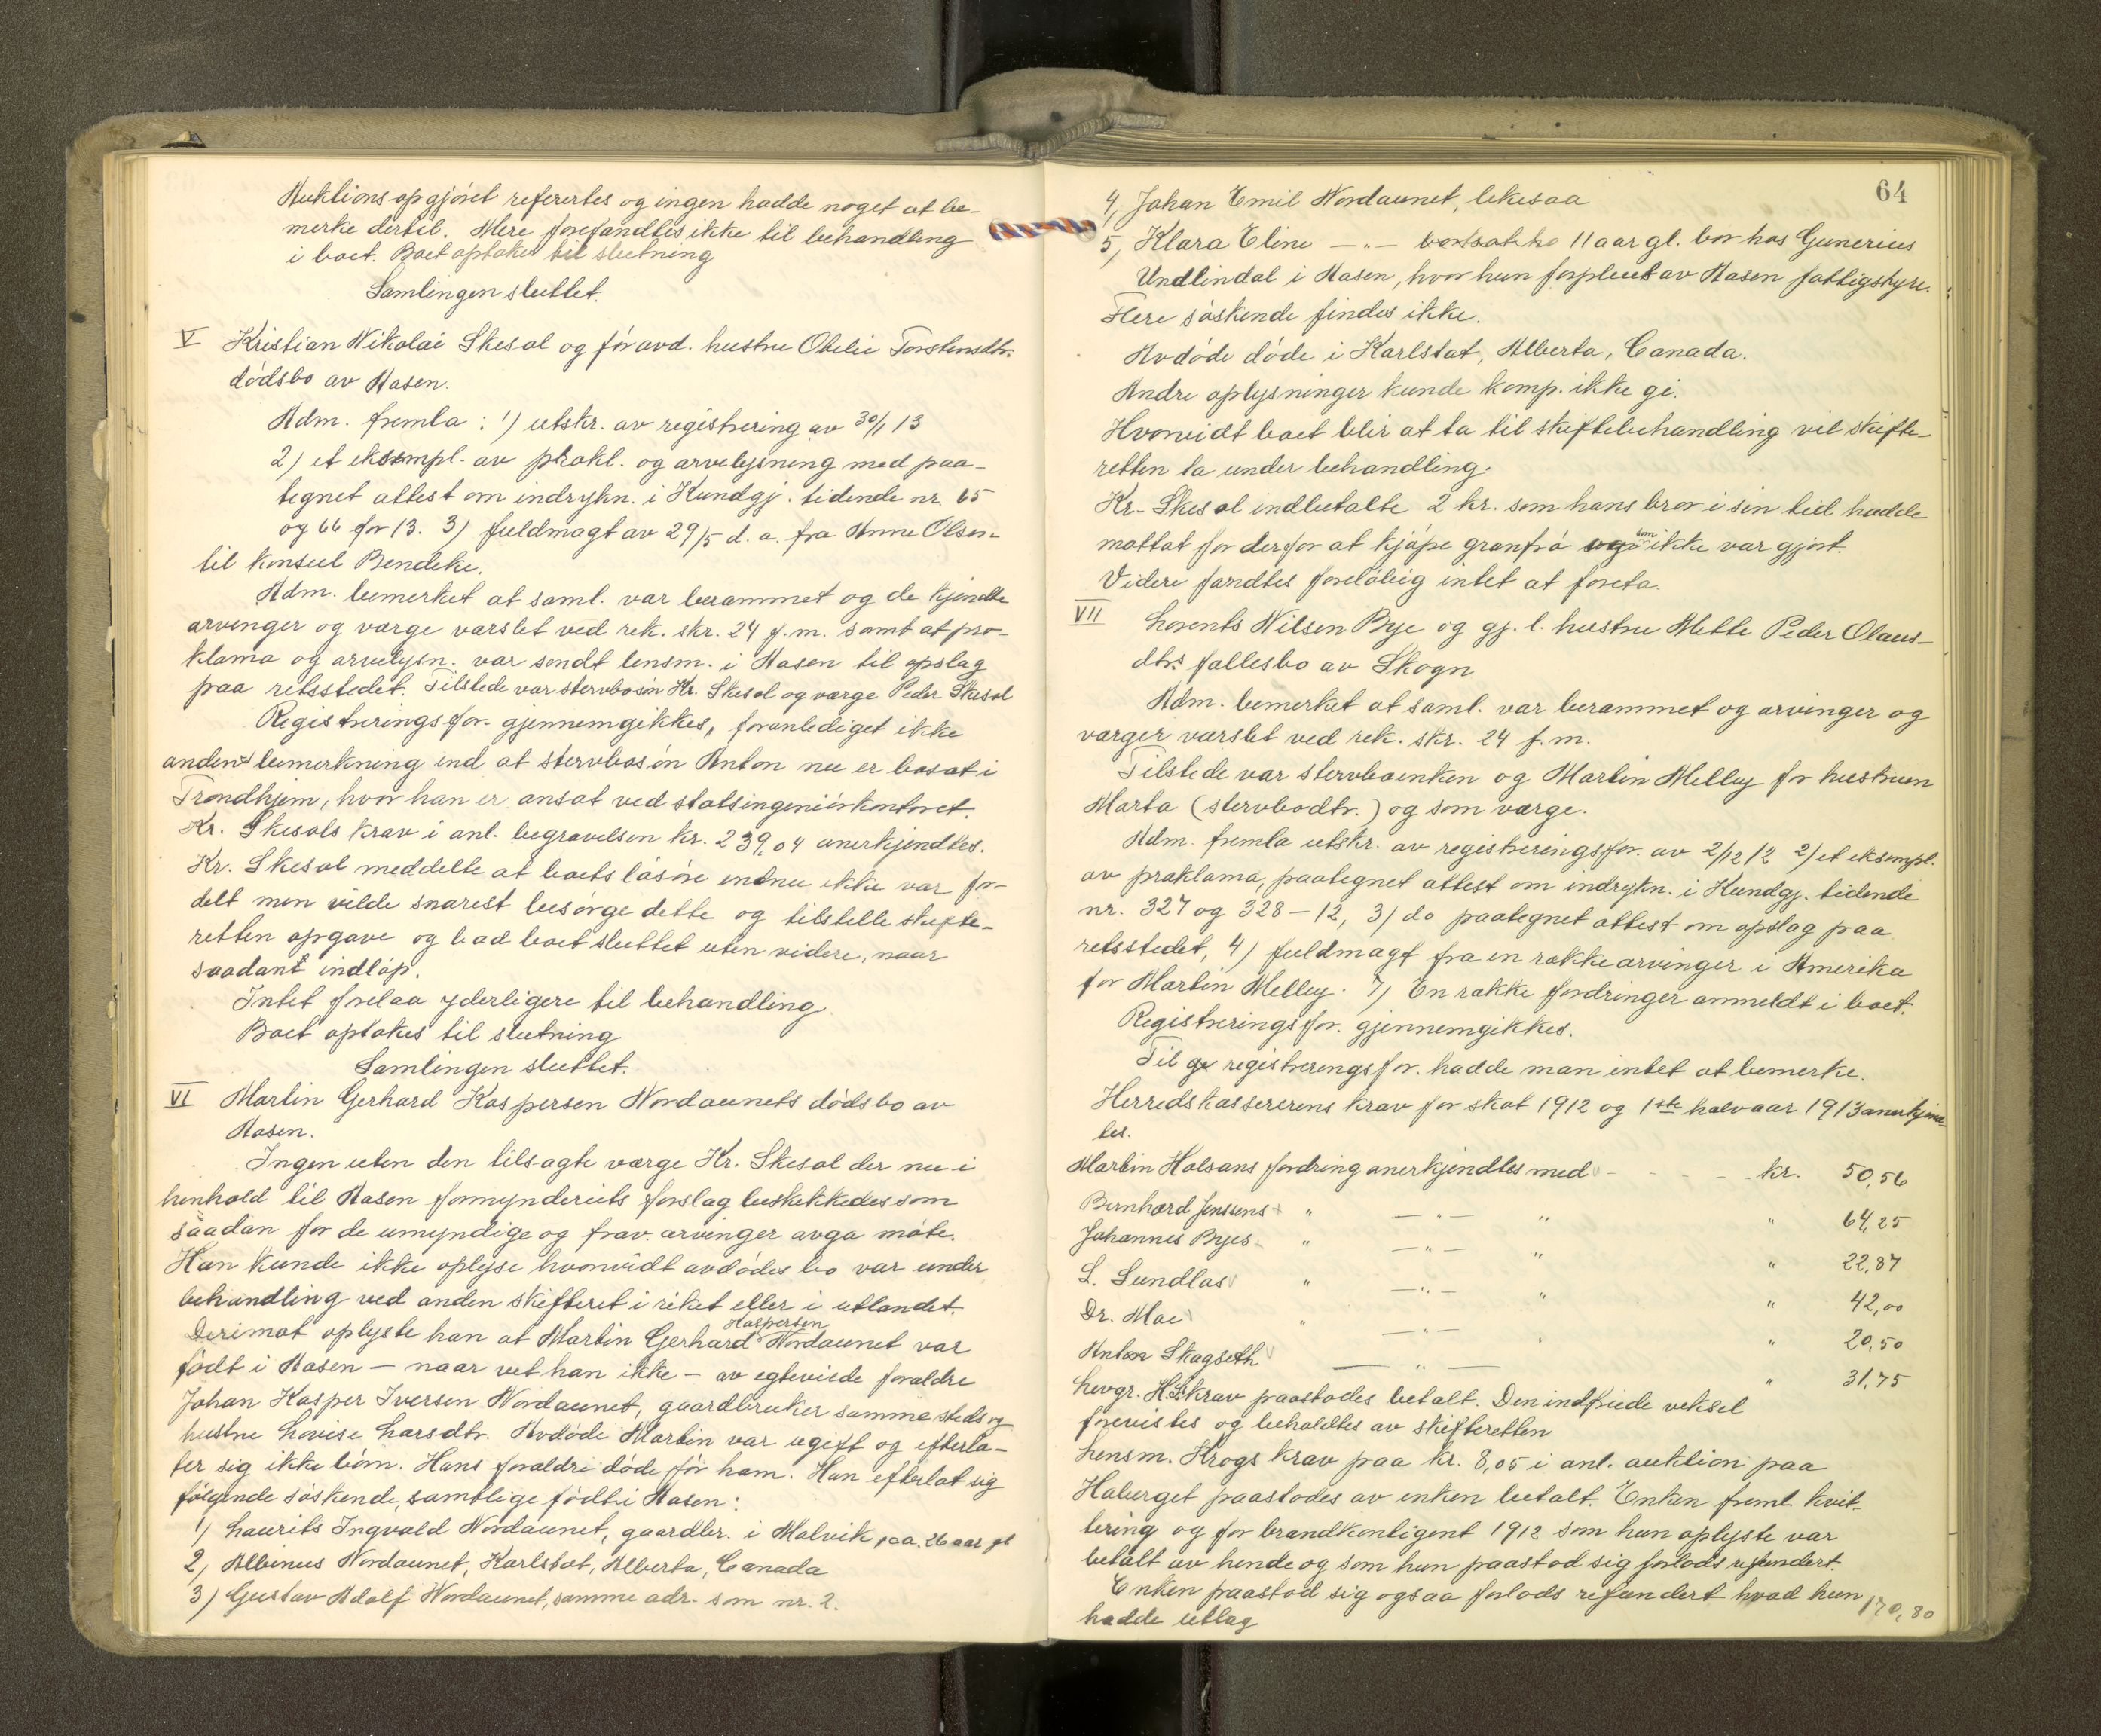 Auktionsopgjöret referertes og ingen hadde noget at be-
merke dertil. Mere forefandtes ikke til behandling
i boet. Boet optokes til slutning
Samlingen sluttet.
V Kristian Nikolai Skesol og før avd. hustru Obelie Torstensdtr.
dödsbo av Aasen.
Adm. fremla: 1) utskr. av registrering av 30/1 13
2) et eksempl. av prokl. og arvelysning med paa-
tegnet attest om indrykn. i Kundgj. tidende nr. 65
og 66 for 13. 3) fuldmagt av 29/5 d. a. fra Anne Olsen
til Konsul Bendeke.
Adm. bemerket at saml. var berammet og de kjendte
arvinger og værge varslet ved rek. skr. 24 f. m. samt at pro-
klama og arvelysn. var sendt lensm. i Aasen til opslag
paa retsstedet. Tilstede var stervbosön Kr. Skesol og værge Peder Skesol
Registreringsfor. gjennemgikkes, foranlediget ikke
anden bemerkning end at stervbosön Anton nu er bosat i
Trondhjem, hvor han er ansat ved statsingeniörkontoret.
Kr. Skesols krav i anl. begravelsen kr. 239,04 anerkjendtes.
Kr. Skesol meddelte at boets lösöre endnu ikke var for-
delt men vilde snarest besörge dette og tilstille skifte-
retten opgave og bad boet sluttet uten videre, naar
saadant indlöp.
Intet forelaa yderligere til behandling.
Boet optokes til slutning
Samlingen sluttet.
VI Martin Gerhard Kaspersen Nordaunets dödsbo av
Aasen.
Ingen uten den tilsagte værge Kr. Skesol der nu i
henhold til Aasen formynderiets forslag beskikkedes som
saadan for de umyndige og frav. arvinger avga möte.
Han kunde ikke oplyse hvorvidt avdödes bo var under
behandling ved anden skifteret i riket eller i utlandet.
Derimot oplyste han at Martin Gerhard Kaspersen Nordaunet var
födt i Aasen – naar vet han ikke – av egteviede foraldre
Johan Kasper Iversen Nordaunet, gaardbruker samme steds og
hustru Lovise Larsdtr. Avdöde Martin var ugift og efterla-
ter sig ikke börn. Hans foraldre döde för ham. Han efterlot sig
fölgende söskende, samtlige födt i Aasen:
1) Laurits Ingvald Nordaunet, gaardbr. i Malvik, ca. 26 aar gl
2) Albinus Nordaunet, Karlstat, Alberta, Canada
3) Gustav Adolf Nordaunet, samme adr. som nr. 2.
64
4, Johan Emil Nordaunet, likesaa
5, Klara Eline —"— 11 aar gl. bor hos Gunerius
Undlindal i Aasen, hvor hun forpleies av Aasen fattigstyre.
Flere söskende findes ikke.
Avdöde döde i Karlstat, Alberta, Canada.
Andre oplysninger kunde komp. ikke gi.
Hvorvidt boet blir at ta til skiftebehandling vil skifte-
retten ta under behandling.
Kr. Skesol indbetalte 2 kr. som hans bror i sin tid hadde
mottat for derfor at kjöpe granfrö som ikke var gjort.
Videre fandtes forelöbig intet at foreta.
VII Lorents Nilsen Bye og gj. l. hustru Mette Peder Olaus-
dtrs fallesbo av Skogn
Adm. bemerket at saml. var berammet og arvinger og
varger varslet ved rek. skr. 24 f. m.
Tilstede var stervboenken og Martin Melley for hustruen
Marta (stervbodtr.) og som varge.
Adm. fremla utskr. av registreringsfor. av 2/12 12 2) et eksempl.
av proklama, paategnet attest om indrykn. i Kundgj. tidende
nr. 327 og 328 – 12, 3) do paategnet attest om opslag paa
retsstedet, 4) fuldmagt fra en rakke arvinger i Amerika
for Martin Melley. 7) En rakke fordringer anmeldt i boet.
Registreringsfor. gjennemgikkes.
Til registreringsfor. hadde man intet at bemerke.
Herredskassererens krav for skat 1912 og 1ste halvaar 1913 anerkjend-
tes.
Martin Holsans fordring anerkjendtes med - - - kr. 50,56
Bernhard Jenssens " —"— " " 64,25
Johannes Byes " —"— " " 22,87
L. Sundlas " —"— " " 42,00
Dr. Moe " —"— " " 20,50
Anton Skagseth —"— " 31,75
Levgr. H. S. krav paastodes betalt. Den indfriede veksel
forevistes og beholdtes av skifteretten
Lensm. Krogs krav paa kr. 8,05 i anl. auktion paa
Haburget paastodes av enken betalt. Enken freml. kvit-
tering og for brandkontigent 1912 som hun oplyste var
betalt av hende og som hun paastod sig forlods refundert.
Enken paastod sig ogsaa forlods refundert hvad hun
hadde utlag 170,80